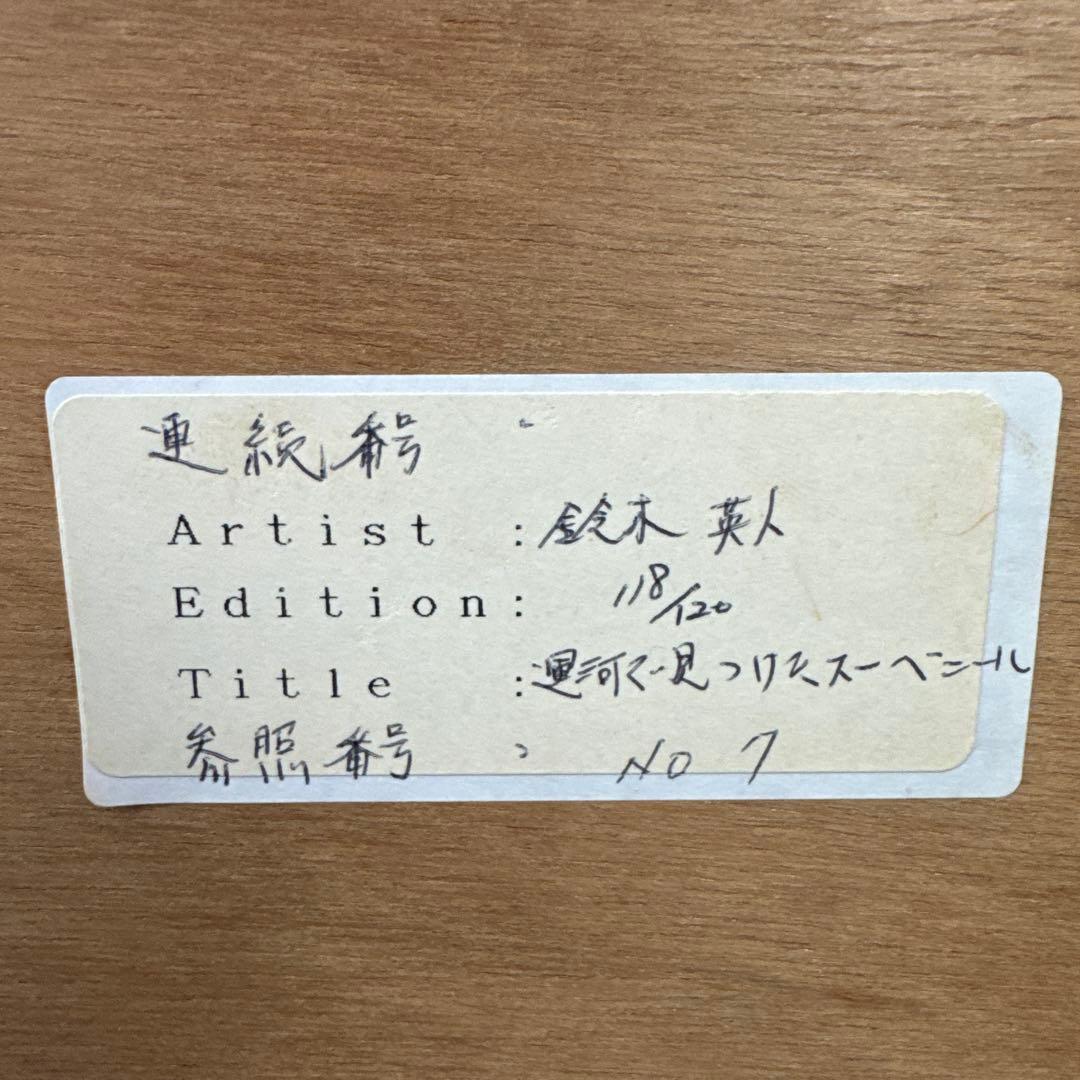 連続番号 :
Artist :鈴木 英人
Edition: 118/120
Title :運河で見つけたスーベニール
参照番号 : NO 7